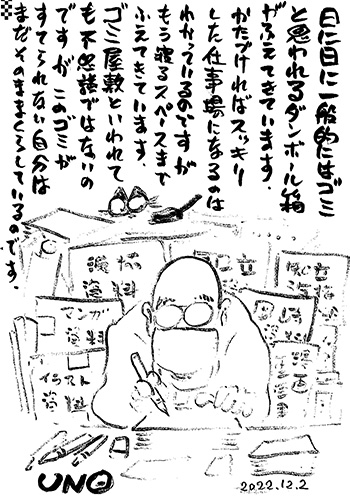 日に日に一般的にはゴミ
と思われるダンボール箱
がふえてきています.
かたづければスッキリ
した仕事場になるのは
わかっているのですが
もう寝るスペースまで
ふえてきています.
ゴミ屋敷といわれて
も不思議ではないの
ですが このゴミが
すてられない自分は
まだそのままくらしているのです.
資料
マンガ
資料
イラスト
資料
資料
映画
UNO
2022.12.2